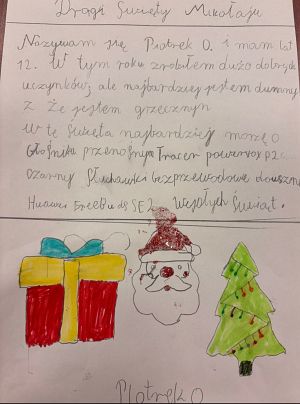 Drogi Święty Mikołaju
Nazywam się Piotrek O. i mam lat
12. W tym roku zrobiłem dużo dobrych
uczynków, ale najbardziej jestem dumny
z że jestem grzecznym
W te święta najbardziej marzę o
Głośniku przenośnym Tracer
Czarny Słuchawki bezprzewodowe douszne
Huawei FreeBuds SE2 Wesołych Świąt.
Piotrek O